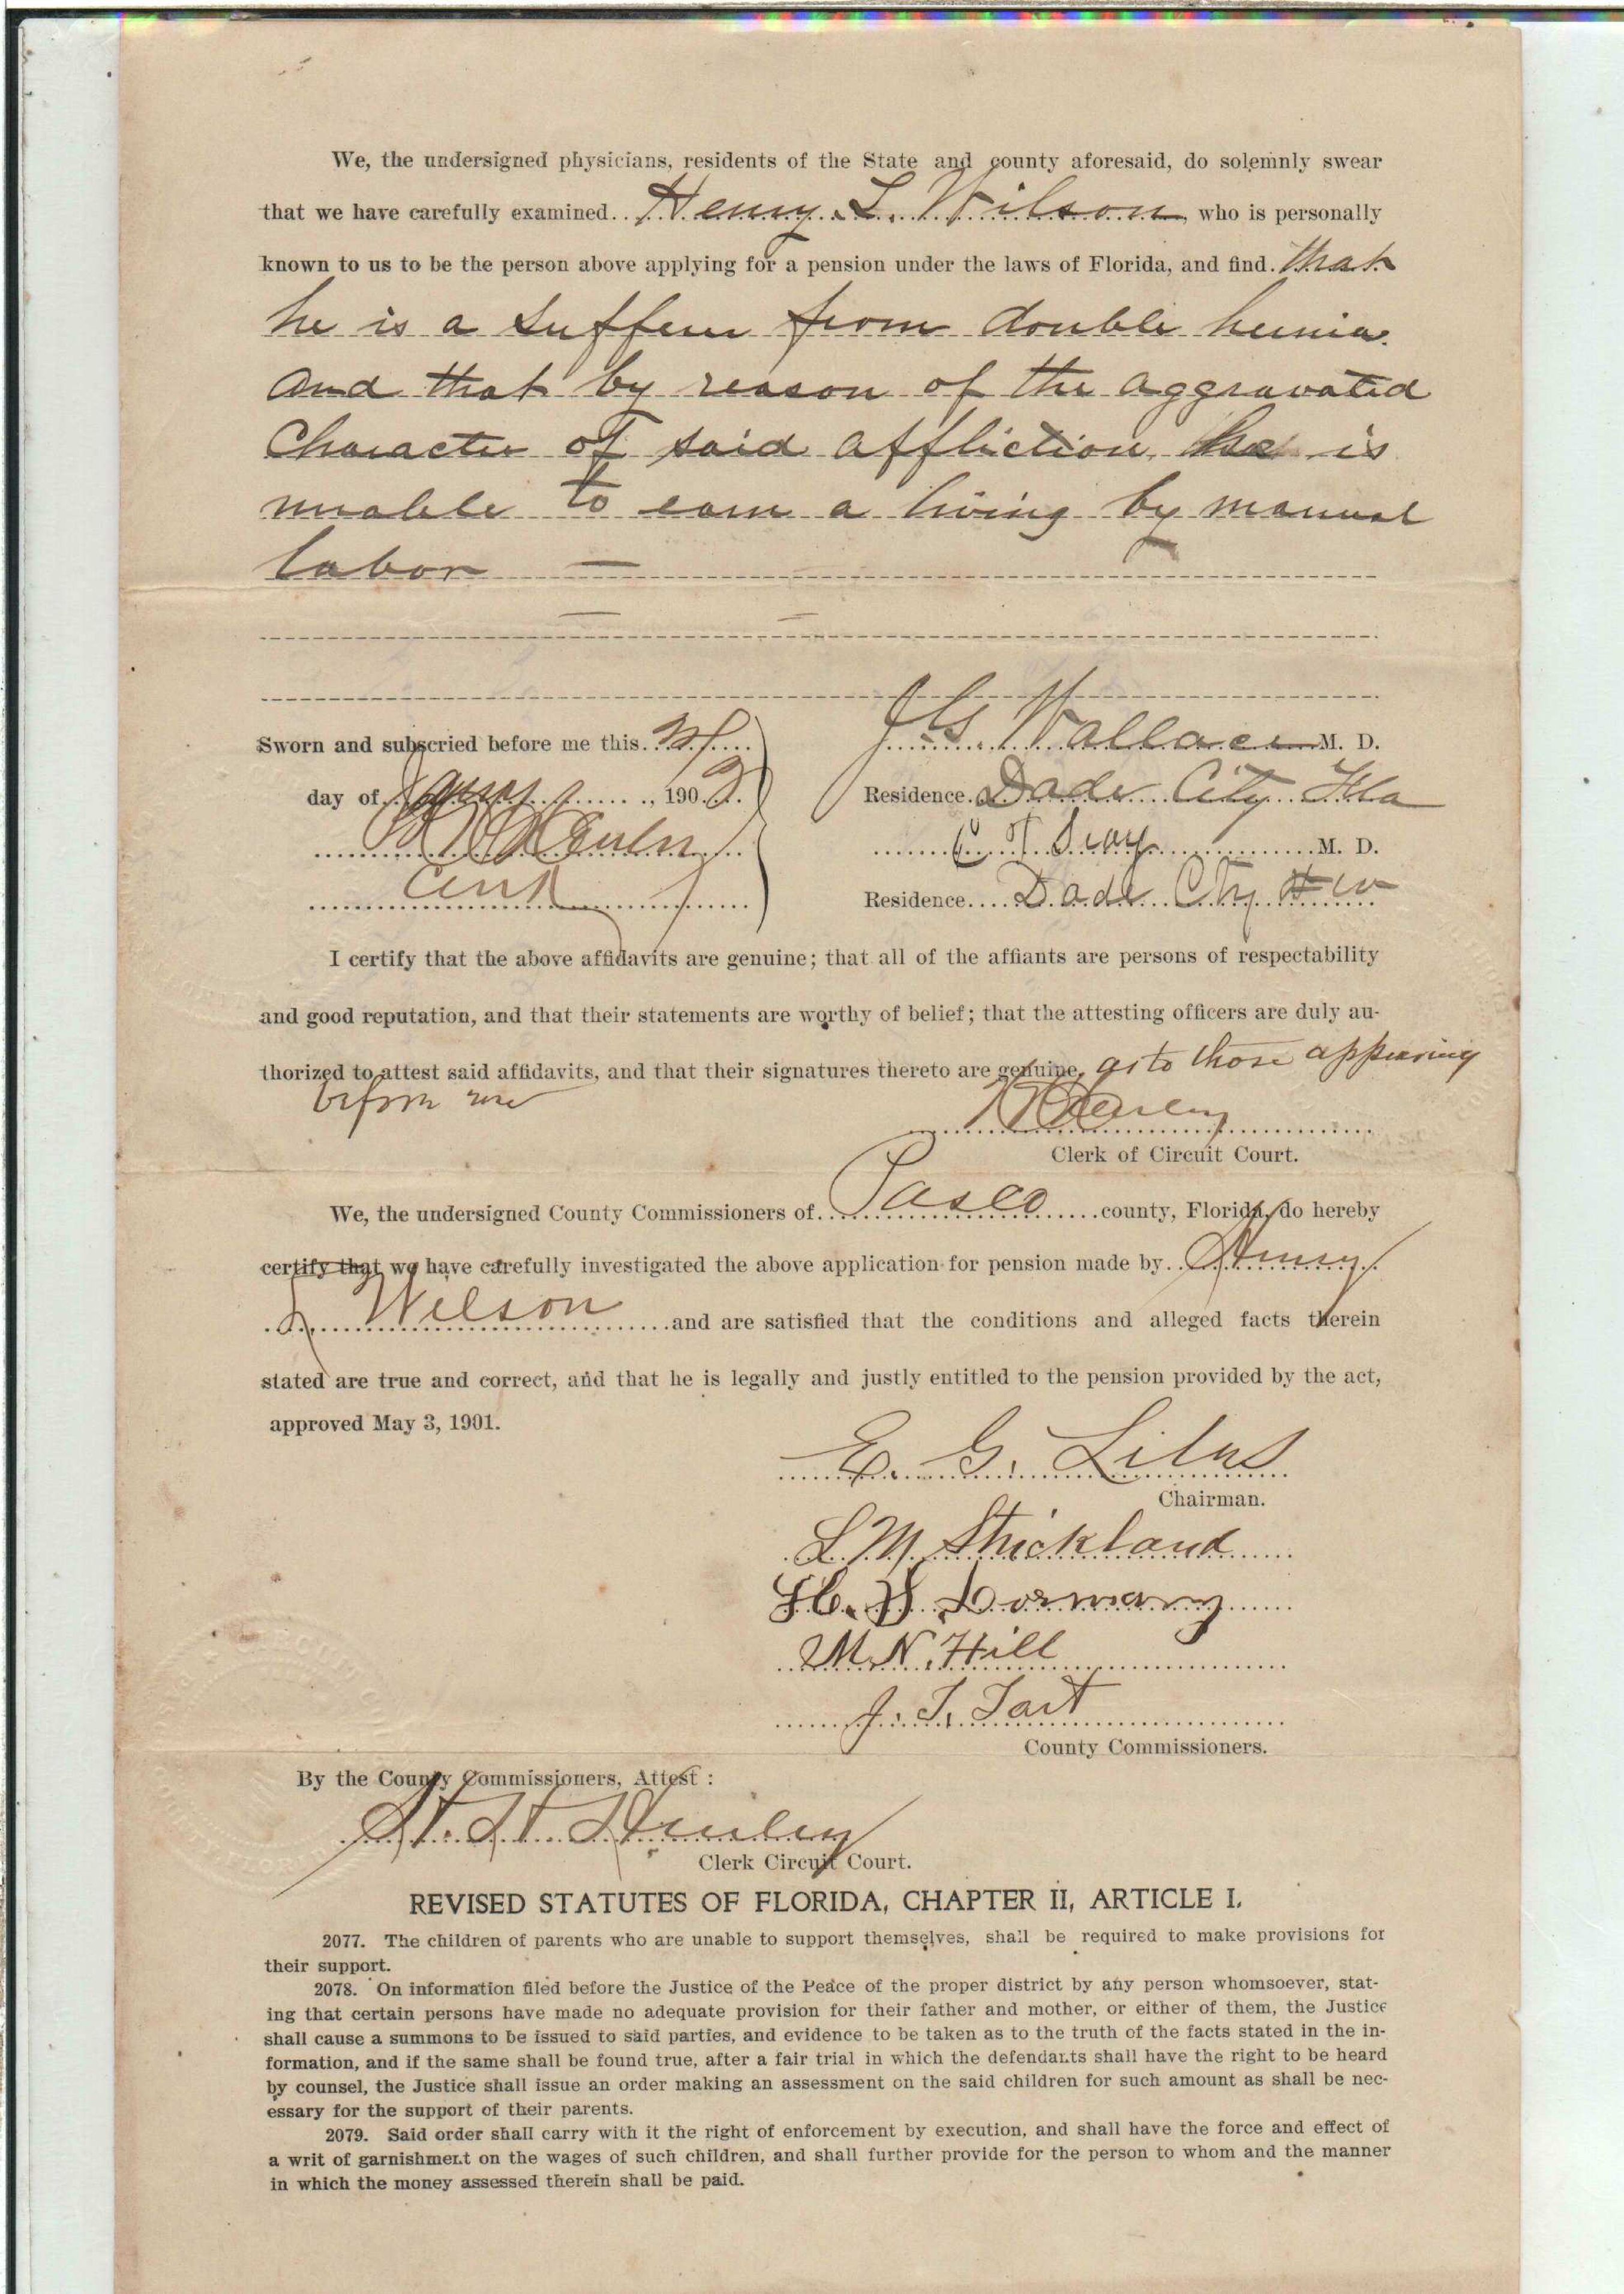 We, the undersigned physicians, residents of the State and county aforesaid, do solemnly swear
that we have carefully examined Henry L. Wilson, who is personally
known to us to be the person above applying for a pension under the laws of Florida, and find that
he is a sufferer from double hernia
and that by reason of the aggravated
Character of said affliction he is
unable to earn a living by manual
labor
Sworn and subscried before me this
day of Jany, 1902
Clerk
J G Wallace M. D.
Residence Dade City Fla
M. D.
Residence Dade City Fla
I certify that the above affidavits are genuine; that all of the affiants are persons of respectability
and good reputation, and that their statements are worthy of belief; that the attesting officers are duly au-
thorized to attest said affidavits, and that their signatures thereto are genuine, as to those appearing
before me
Clerk of Circuit Court.
We, the undersigned County Commissioners of Pasco county, Florida, do hereby
certify that we have carefully investigated the above application for pension made by Henry
L Wilson and are satisfied that the conditions and alleged facts therein
stated are true and correct, and that he is legally and justly entitled to the pension provided by the act,
approved May 3, 1901.
E. G. Liles
Chairman.
L M Strickland
Dormany
M. N. Hill
J. T. Tait
County Commissioners.
By the County Commissioners, Attest :
H. H. Henley
Clerk Circuit Court.
REVISED STATUTES OF FLORIDA, CHAPTER II, ARTICLE I.
2077. The children of parents who are unable to support themselves, shall be required to make provisions for
their support.
2078. On information filed before the Justice of the Peace of the proper district by any person whomsoever, stat-
ing that certain persons have made no adequate provision for their father and mother, or either of them, the Justice
shall cause a summons to be issued to said parties, and evidence to be taken as to the truth of the facts stated in the in-
formation, and if the same shall be found true, after a fair trial in which the defendants shall have the right to be heard
by counsel, the Justice shall issue an order making an assessment on the said children for such amount as shall be nec-
essary for the support of their parents.
2079. Said order shall carry with it the right of enforcement by execution, and shall have the force and effect of
a writ of garnishment on the wages of such children, and shall further provide for the person to whom and the manner
in which the money assessed therein shall be paid.